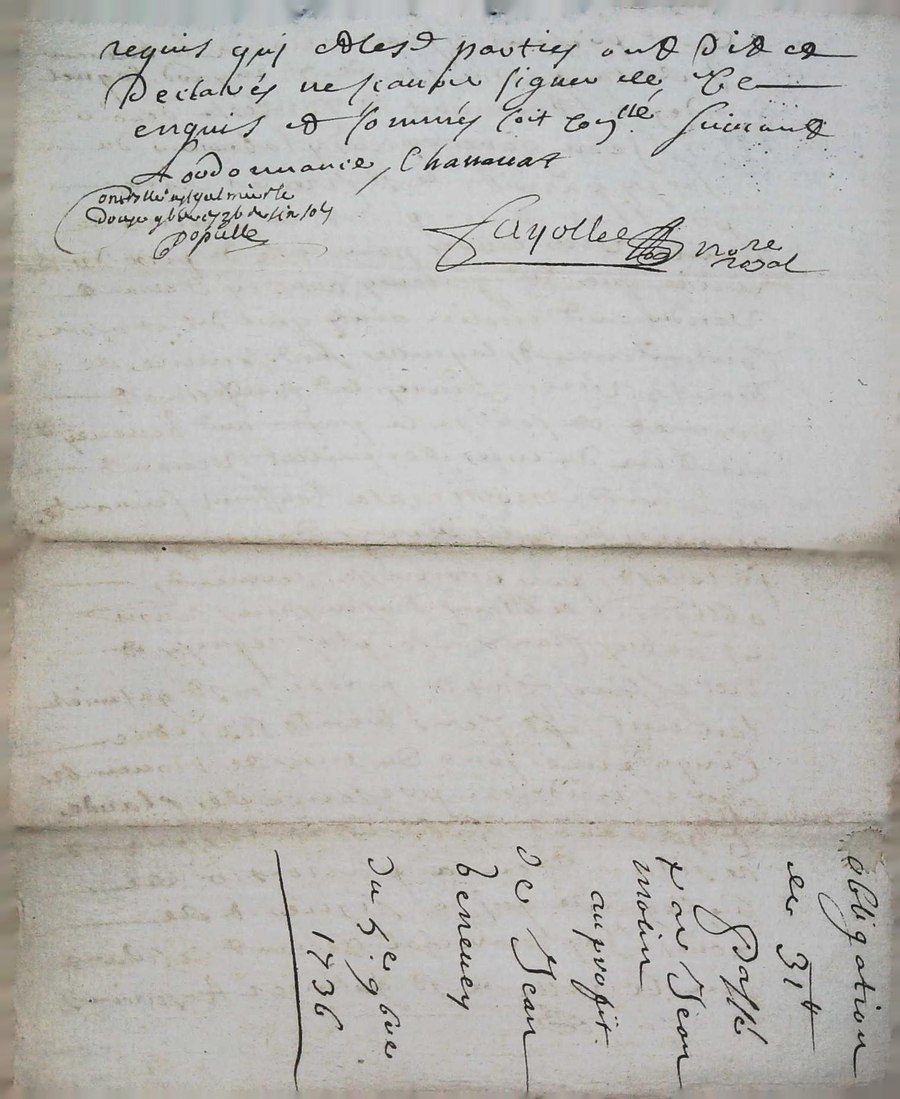 requis qui et lesd parties ont dit et
Declarés ne scavoir signer de ce
enquis et sommés soit conllé suivant
Lordonnance, Chassanat
Controllé
Douze 9bre 1736
Populle
Fayolle nore
royal
obligation
de 31#
passé
par Jean
molin
au profit
de Jean
du 5e 9bre
1736